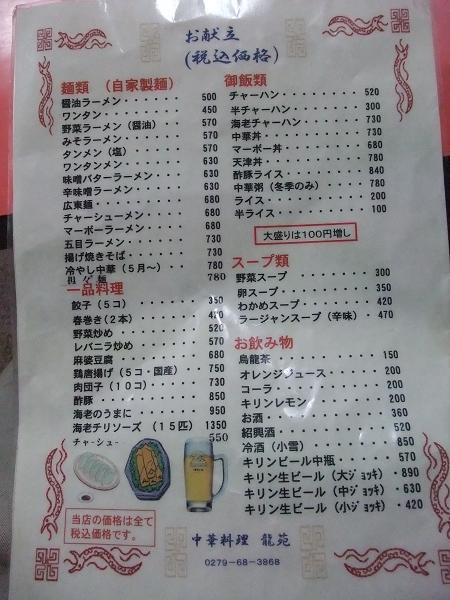 お献立
(税込価格)
麺類 （自家製麺）
醤油ラーメン・・・・・・ 500
ワンタン・・・・・・・・ 450
野菜ラーメン（醤油）・・ 570
みそラーメン・・・・・・ 570
タンメン（塩）・・・・・ 570
ワンタンメン・・・・・・ 630
味噌バターラーメン・・・ 630
辛味噌ラーメン・・・・・ 630
広東麺・・・・・・・・・ 680
チャーシューメン・・・・ 680
マーボーラーメン・・・・ 680
五目ラーメン・・・・・・ 730
揚げ焼きそば・・・・・・ 730
冷やし中華（５月〜）・・ 780
担々麺 780
一品料理
餃子（５コ）・・・・・・ 350
春巻き(２本)・・・・・・ 420
野菜炒め・・・・・・・・ 520
レバニラ炒め・・・・・・ 570
麻婆豆腐・・・・・・・・ 680
鶏唐揚げ（５コ・国産） 750
肉団子（１０コ）・・・・ 730
酢豚・・・・・・・・・・ 850
海老のうまに・・・・・・ 950
海老チリソーズ （１５匹） 1350
チャーシュー・ 550
御飯類
チャーハン・・・・・・・ 520
半チャーハン・・・・・・ 300
海老チャーハン・・・・・ 730
中華丼・・・・・・・・・ 730
マーボー丼・・・・・・・ 680
天津丼・・・・・・・・・ 780
酢豚ライス・・・・・・・ 840
中華粥（冬季のみ）・・・ 780
ライス・・・・・・・・・ 200
半ライス・・・・・・・・ 100
大盛りは１００円増し
スープ類
野菜スープ・・・・・・・ 300
卵スープ・・・・・・・・ 350
わかめスープ・・・・・・ 420
ラージャンスープ（辛味）・470
お飲み物
烏龍茶・・・・・・・・・ 150
オレンジジュース・・・・ 200
コーラ・・・・・・・・・ 200
キリンレモン・・・・・・ 200
お酒・・・・・・・・・・ 360
紹興酒・・・・・・・・・ 520
冷酒（小雪）・・・・・・ 850
キリンビール中瓶・・・・ 570
キリン生ビール（大ｼﾞｮｯｷ）・890
キリン生ビール（中ｼﾞｮｯｷ）・630
キリン生ビール（小ｼﾞｮｯｷ）・420
当店の価格は全て
税込価格です。
中華料理 龍苑
0279-68-3868